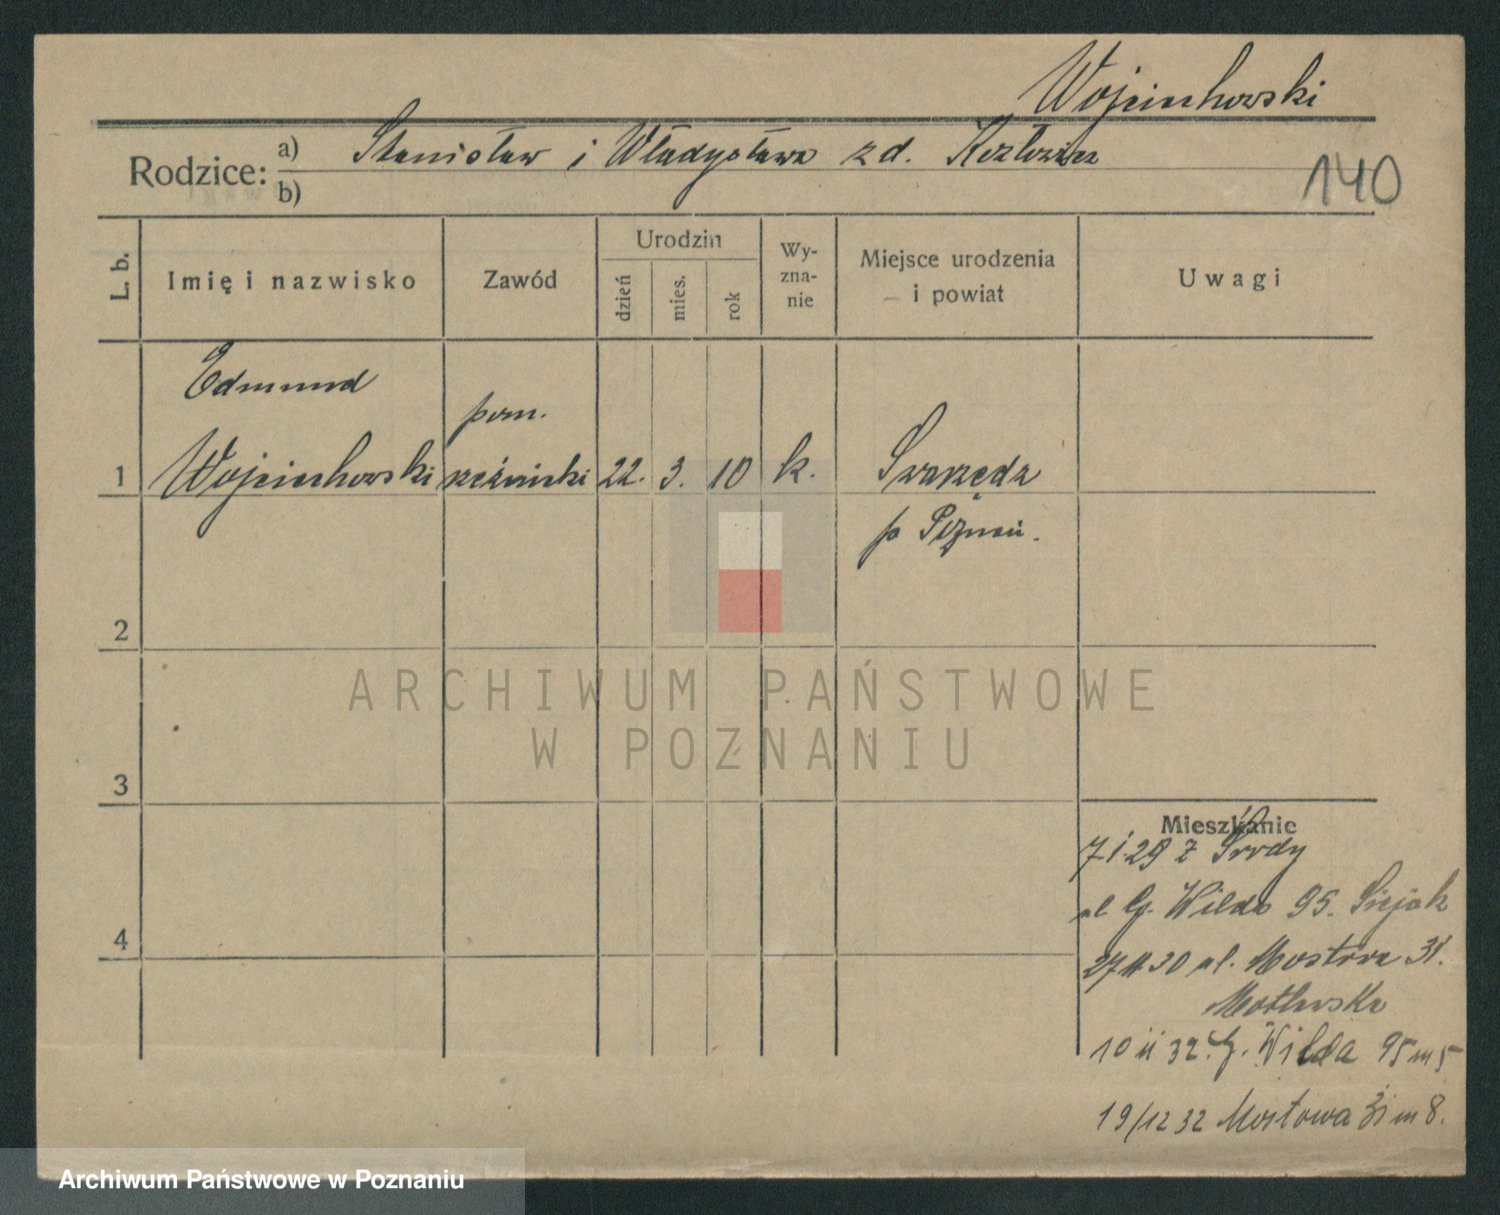 Wojciechowski
Rodzice: a) Stanisław i Władysława zd.
b)
140
L. b.
Imię i nazwisko
Zawód
Urodzin
dzień
mies.
rok
Wy-
zna-
nie
Miejsce urodzenia
i powiat
Uwagi
Edmund
pom.
1 Wojciechowski rzeźnicki 22. 3. 10 k. Swarzędz
p Poznań.
2
ARCHIWUM PAŃSTWOWE
W POZNANIU
3
Mieszkanie
7 I 29 z Środy
ul G. Wilda 95.
4
27 II 30 ul. Mostowa 31.
10 II 32. G. Wilda 95 m 5
19/12 32 Mostowa 31 m 8.
Archiwum Państwowe w Poznaniu